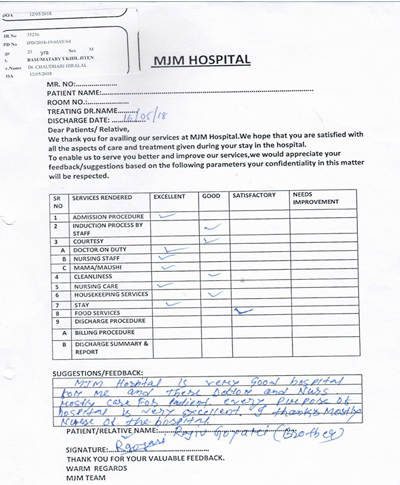 DOA 12/05/2018
MR No 35236
IPD No IPD/2018-19/MAY/64
25 yrs Sex M
BASUMATARY UKHILJITEN
Dr. CHAUDHARI HIRALAL
DOA 12/05/2018
MJM HOSPITAL
MR. NO:......................
PATIENT NAME:......................
ROOM NO.:......................
TREATING DR.NAME......................
DISCHARGE DATE: 16/05/18
Dear Patients/ Relative,
We thank you for availing our services at MJM Hospital.We hope that you are satisfied with
all the aspects of care and treatment given during your stay in the hospital.
To enable us to serve you better and improve our services,we would appreciate your
feedback/suggestions based on the following parameters your confidentiality in this matter
will be respected.
SR NO SERVICES RENDERED EXCELLENT GOOD SATISFACTORY NEEDS IMPROVEMENT
1 ADMISSION PROCEDURE ✓
2 INDUCTION PROCESS BY STAFF ✓
3 COURTESY ✓
A DOCTOR ON DUTY ✓
B NURSING STAFF ✓
C MAMA/MAUSHI ✓
4 CLEANLINESS ✓
5 NURSING CARE ✓
6 HOUSEKEEPING SERVICES ✓
7 STAY ✓
8 FOOD SERVICES ✓
9 DISCHARGE PROCEDURE
A BILLING PROCEDURE
B DISCHARGE SUMMARY & REPORT
SUGGESTIONS/FEEDBACK:
MJM Hospital is very Good hospital
for me and there Doctor and Nurs
mostly care for Patient every Purpose of
hospital is very excellent & thanks Mostly
Nurse of the hospital
PATIENT/RELATIVE NAME: Rajiv Goyari (Brother)
SIGNATURE: Rgoyari
THANK YOU FOR YOUR VALUABLE FEEDBACK.
WARM REGARDS
MJM TEAM